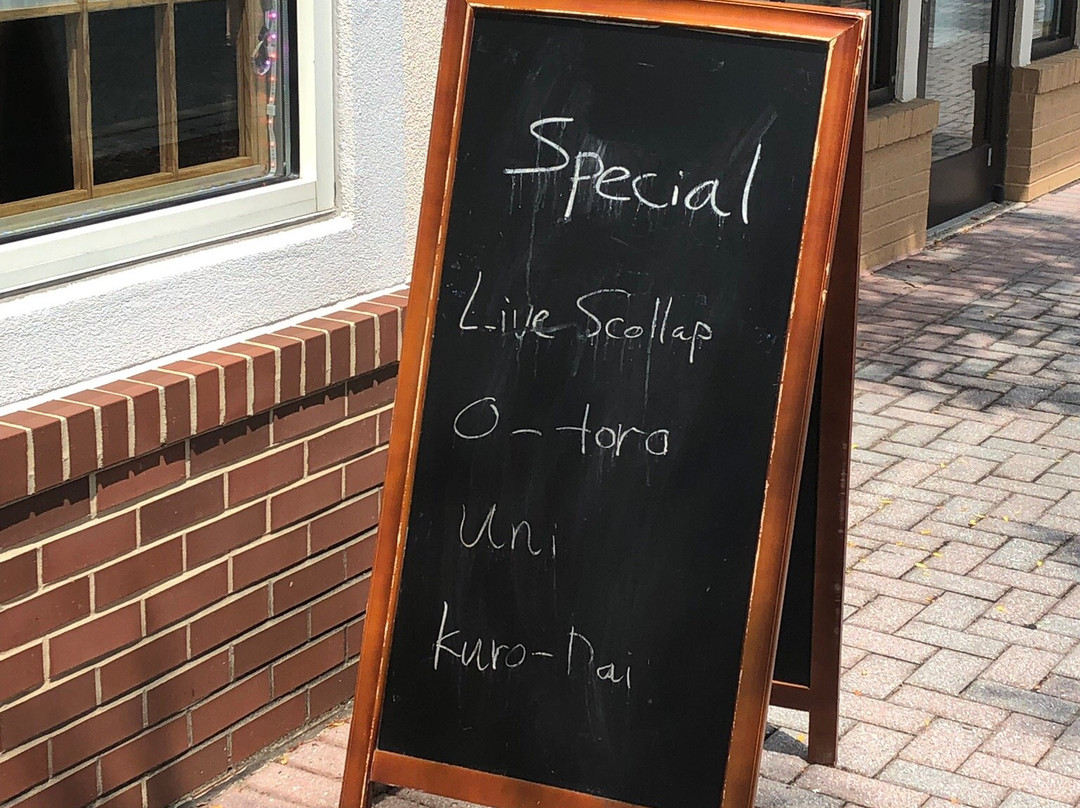 Special
Live Scollap
O-toro
Uni
Kuro-Dai